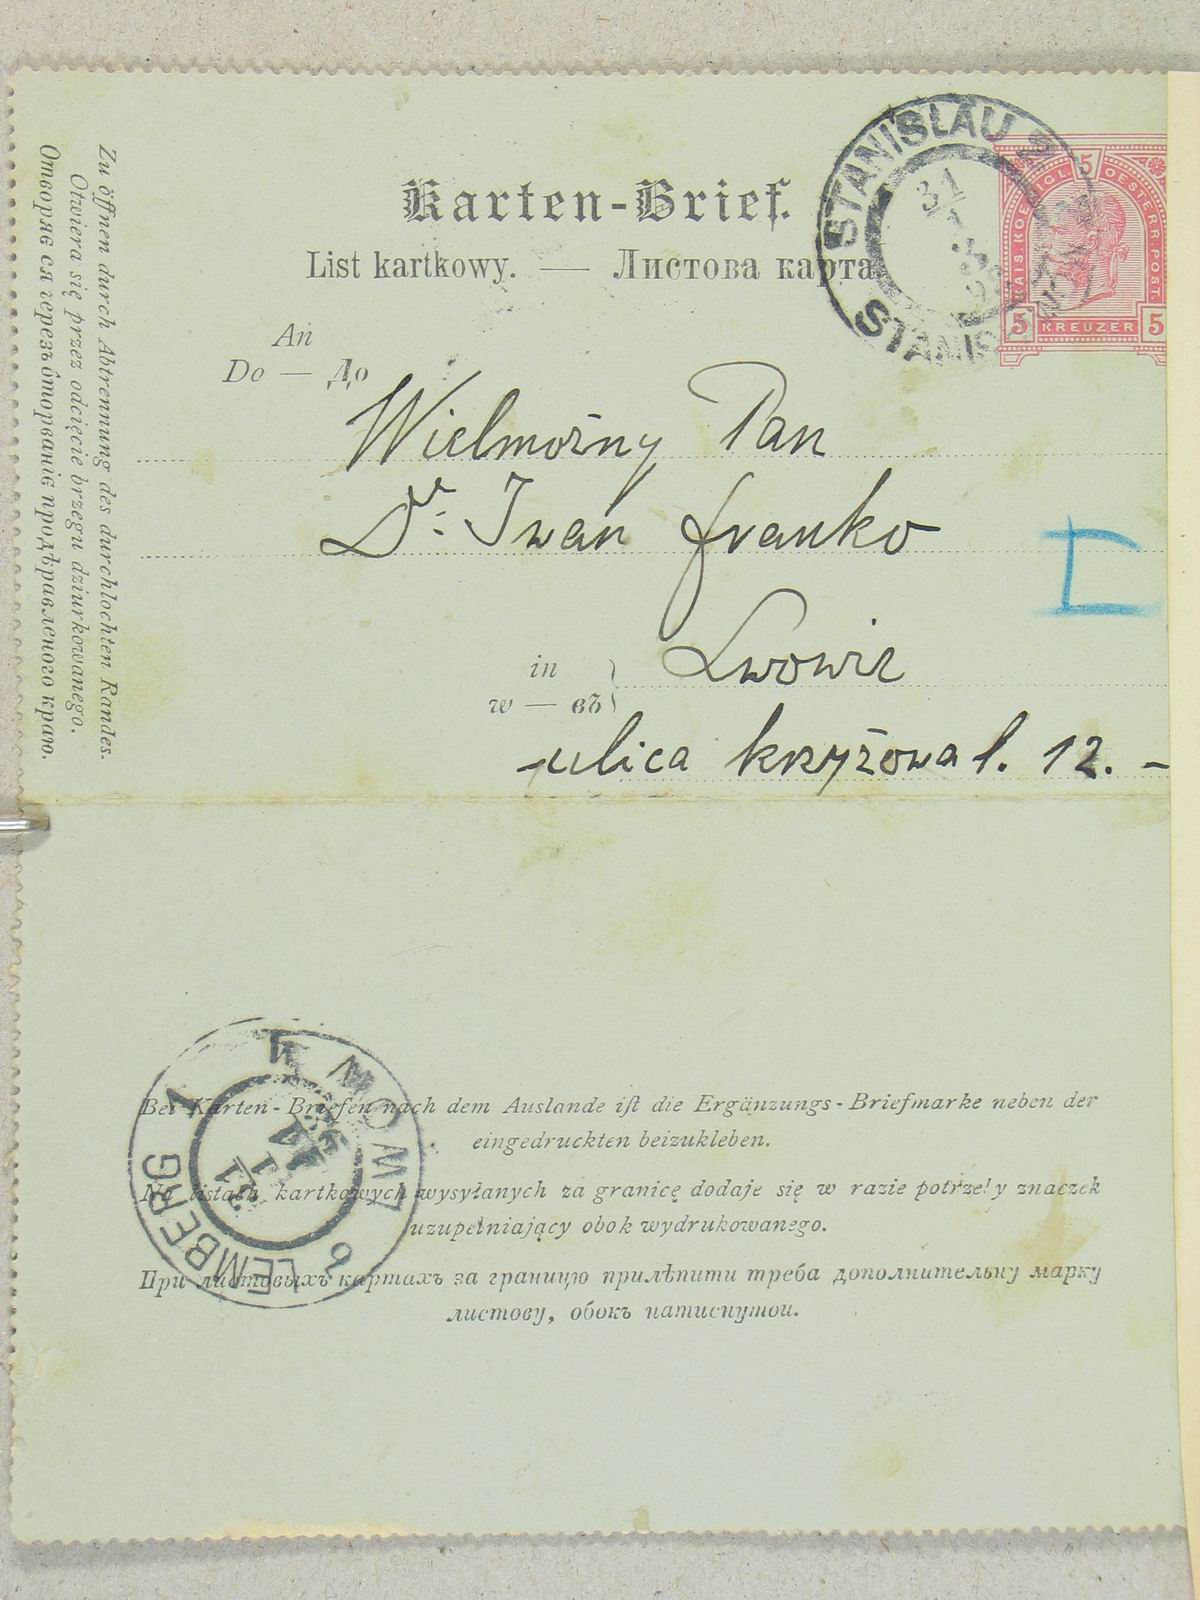 Karten-Brief.
List kartkowy. — Листова карта
An
Do — До
Wielmożny Pan
Dr. Iwan Franko
in
w — въ
Lwowie
ulica krzyżowa l. 12. –
Zu öffnen durch Abtrennung des durchlochten Randes.
Otwiera się przez odcięcie brzegu dziurkowanego.
Отворяє ся черезъ оторванїє продѣравленого краю.
STANISLAU
STANIS
31
KAIS. KOENIGL. OESTERR. POST.
5
5 KREUZER 5
Bei Karten-Briefen nach dem Auslande ist die Ergänzungs-Briefmarke neben der
eingedruckten beizukleben.
Na listach kartkowych wysyłanych za granicę dodaje się w razie potrzeby znaczek
uzupełniający obok wydrukowanego.
При листовыхъ картахъ за границю прилѣпити треба дополнительну марку
листову, обокъ натиснутои.
LEMBERG 1
LWOW